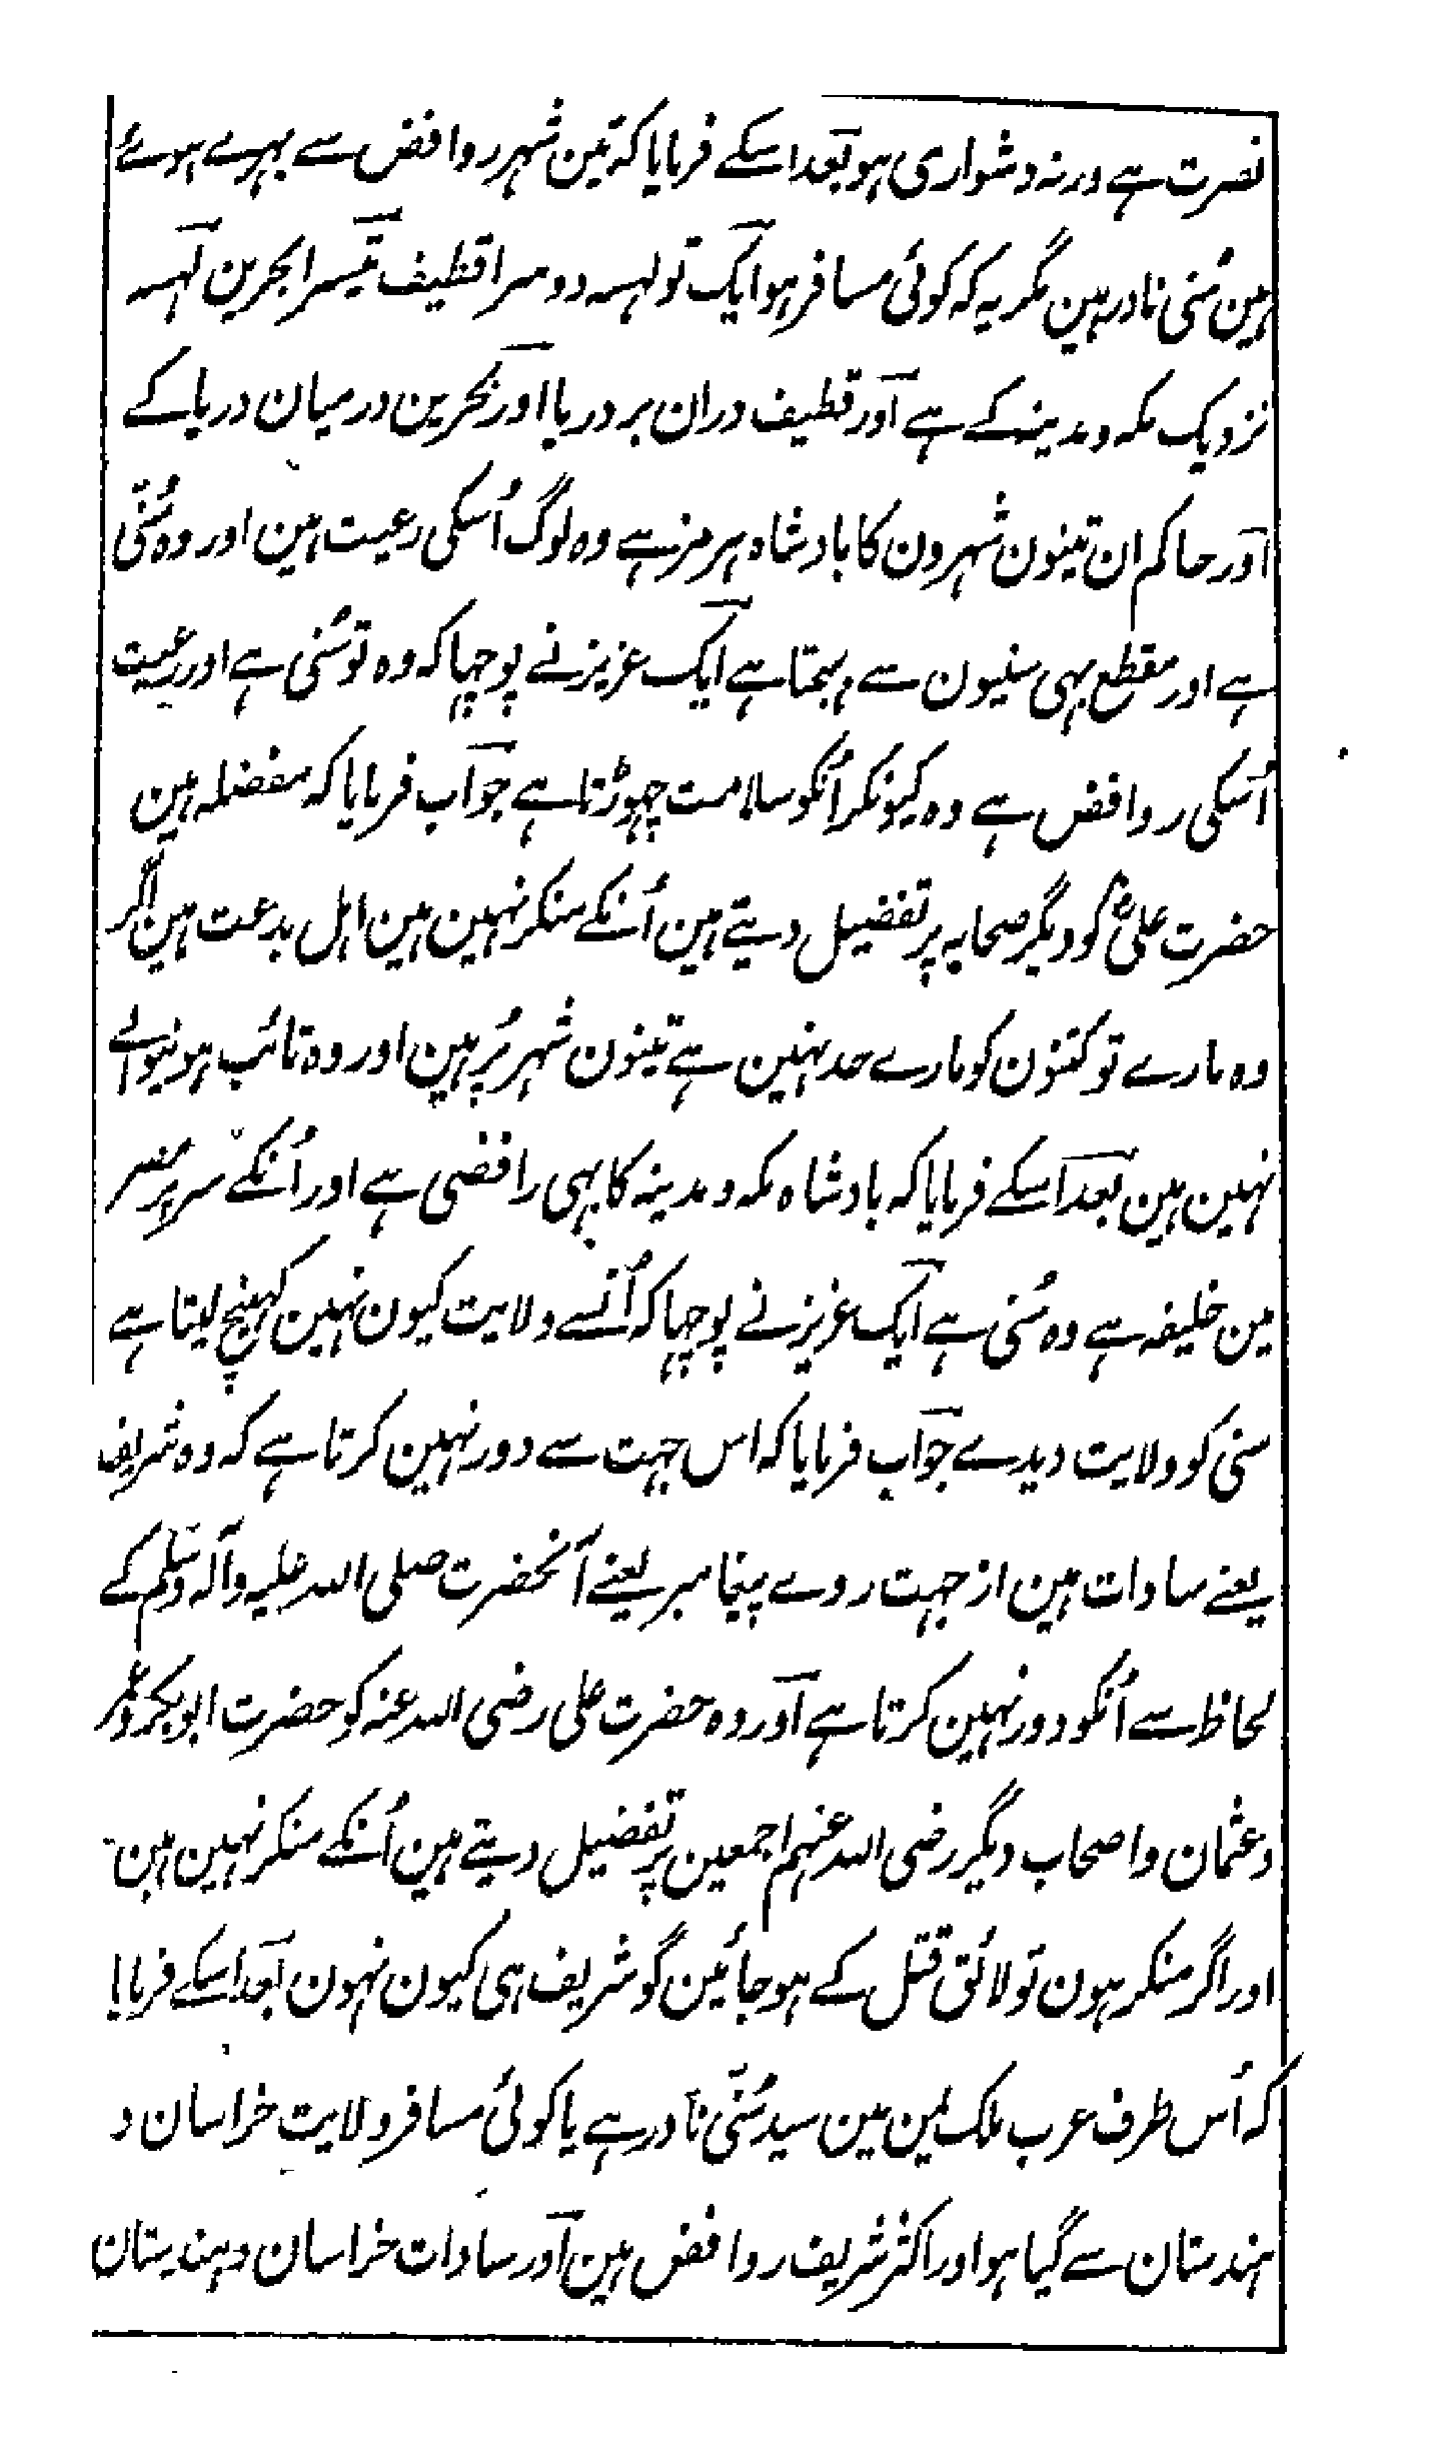 نصرت ہے ورنہ دشواری ہو بعد اسکے فرمایا کہ تین شہر روافض سے بہرے ہوئے
ہین سُنی نادر ہین مگر یہ کہ کوئی مسافر ہو ایک تو لہسہ دوسرا قطیف تیسرا بحرین لہسہ
نزدیک مکہ ومدینہ کے ہے اور قطیف دران بر دریا اور بحرین درمیان دریا کے
اور حاکم ان تینون شہرون کا بادشاہ ہرمز ہے وہ لوگ اُسکی رعیت ہین اور وہ سُنّی
ہے اور مقطع بہی سنیون سے بہیجتا ہے ایک عزیز نے پوچہا کہ وہ تو سُنی ہے اور رعیت
اُسکی روافض ہے وہ کیونکر اُنکو سلامت چہوڑتا ہے جواب فرمایا کہ مفضلہ ہین
حضرت علیؓ کو دیگر صحابہ پر تفضیل دیتے ہین اُنکے منکر نہین ہین اہل بدعت ہین اگر
وہ مارے تو کتنون کو مارے حد نہین ہے تینون شہر پُر ہین اور وہ تائب ہونیوالے
نہین ہین بعد اسکے فرمایا کہ بادشاہ مکہ ومدینہ کا بہی رافضی ہے اور اُنکے سر پر مصر
مین خلیفہ ہے وہ سُنی ہے ایک عزیز نے پوچہا کہ اُنسے ولایت کیون نہین کہینچ لیتا ہے
سنی کو ولایت دیدے جواب فرمایا کہ اس جہت سے دور نہین کرتا ہے کہ وہ شریف
یعنے سادات ہین از جہت روے پیغامبر یعنے آنحضرت صلی اللہ علیہ وآلہ وسلم کے
لحاظ سے اُنکو دور نہین کرتا ہے اور وہ حضرت علی رضی اللہ عنہ کو حضرت ابوبکر وعمر
وعثمان واصحاب دیگر رضی اللہ عنہم اجمعین پر تفضیل دیتے ہین اُنکے منکر نہین ہین
اور اگر منکر ہون تو لائق قتل کے ہو جائین گو شریف ہی کیون نہون بعد اسکے فرمایا
کہ اُس طرف عرب ملک یمن مین سید سُنّی نادر ہے یا کوئی مسافر ولایت خراسان و
ہندستان سے گیا ہو اور اکثر شریف روافض ہین اور سادات خراسان وہندستان